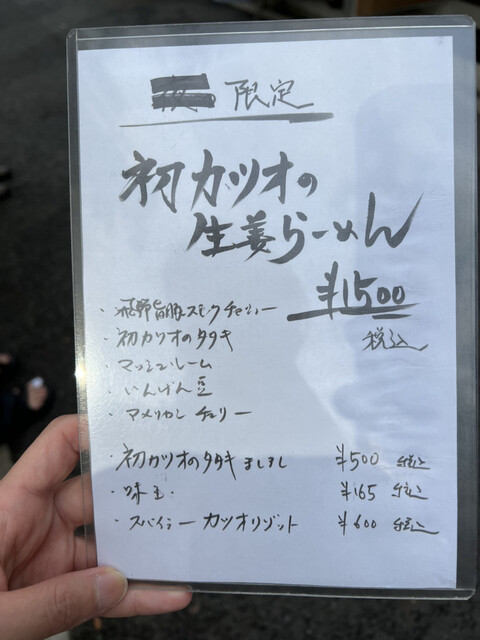 限定
初カツオの
生姜らーめん
¥1500
税込
・ 旨豚スモークチャーシュー
・初カツオのタタキ
・マッシュルーム
・いんげん豆
・アメリカンチェリー
・初カツオのタタキましまし ¥500 税込
・味玉. ¥165 税込
・スパイシーカツオリゾット ¥600 税込